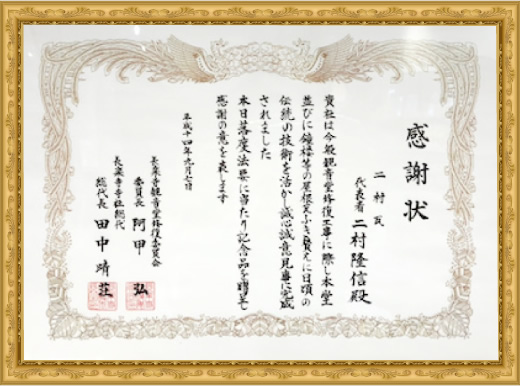 感謝状
二村瓦
代表者 二村隆信殿
貴社は今般観音堂修復工事に際し本堂
並びに鐘楼等の屋根瓦ふき替えに日頃の
伝統の技術を活かし誠心誠意見事に完成
されました
本日落慶法要に当たり記念品を贈呈し
感謝の意を表します
平成十四年九月七日
長楽寺観音堂修復委員会
委員長 阿甲 弘
長楽寺寺社総代
総代長 田中 靖 荘